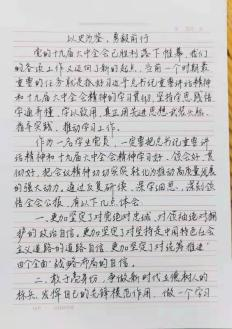 以史为鉴,勇毅前行
党的十九届六中全会已胜利落下帷幕,我们
的各项工作又迈向了新的起点,当前一个时期最
重要的任务就是抓好习近平总书记重要讲话精神
和十九届六中全会精神的学习贯彻,坚持学思践悟
学通弄懂,学以致用,真正用先进思想武装头脑、
指导实践、推动学习工作。
作为一名学生党员,一定要把总书记重要讲
话精神和十九届六中全会精神学习好、领会好、贯
彻好,把会议精神切切实实转化为推动高质量发展
的强大动力。通过反复研读、深学细思,深刻领
悟全会公报,有以下几点体会:
一、更加坚定了对党绝对忠诚、对领袖绝对拥
护的政治自信。更加坚定了对坚持走中国特色社会
主义道路的道路自信,更加坚定了对统筹推进
“四个全面”战略布局的自信。
二、敢于高举旗,争做新时代立德树人的
标兵,发挥自己的先锋模范作用,做一个学习